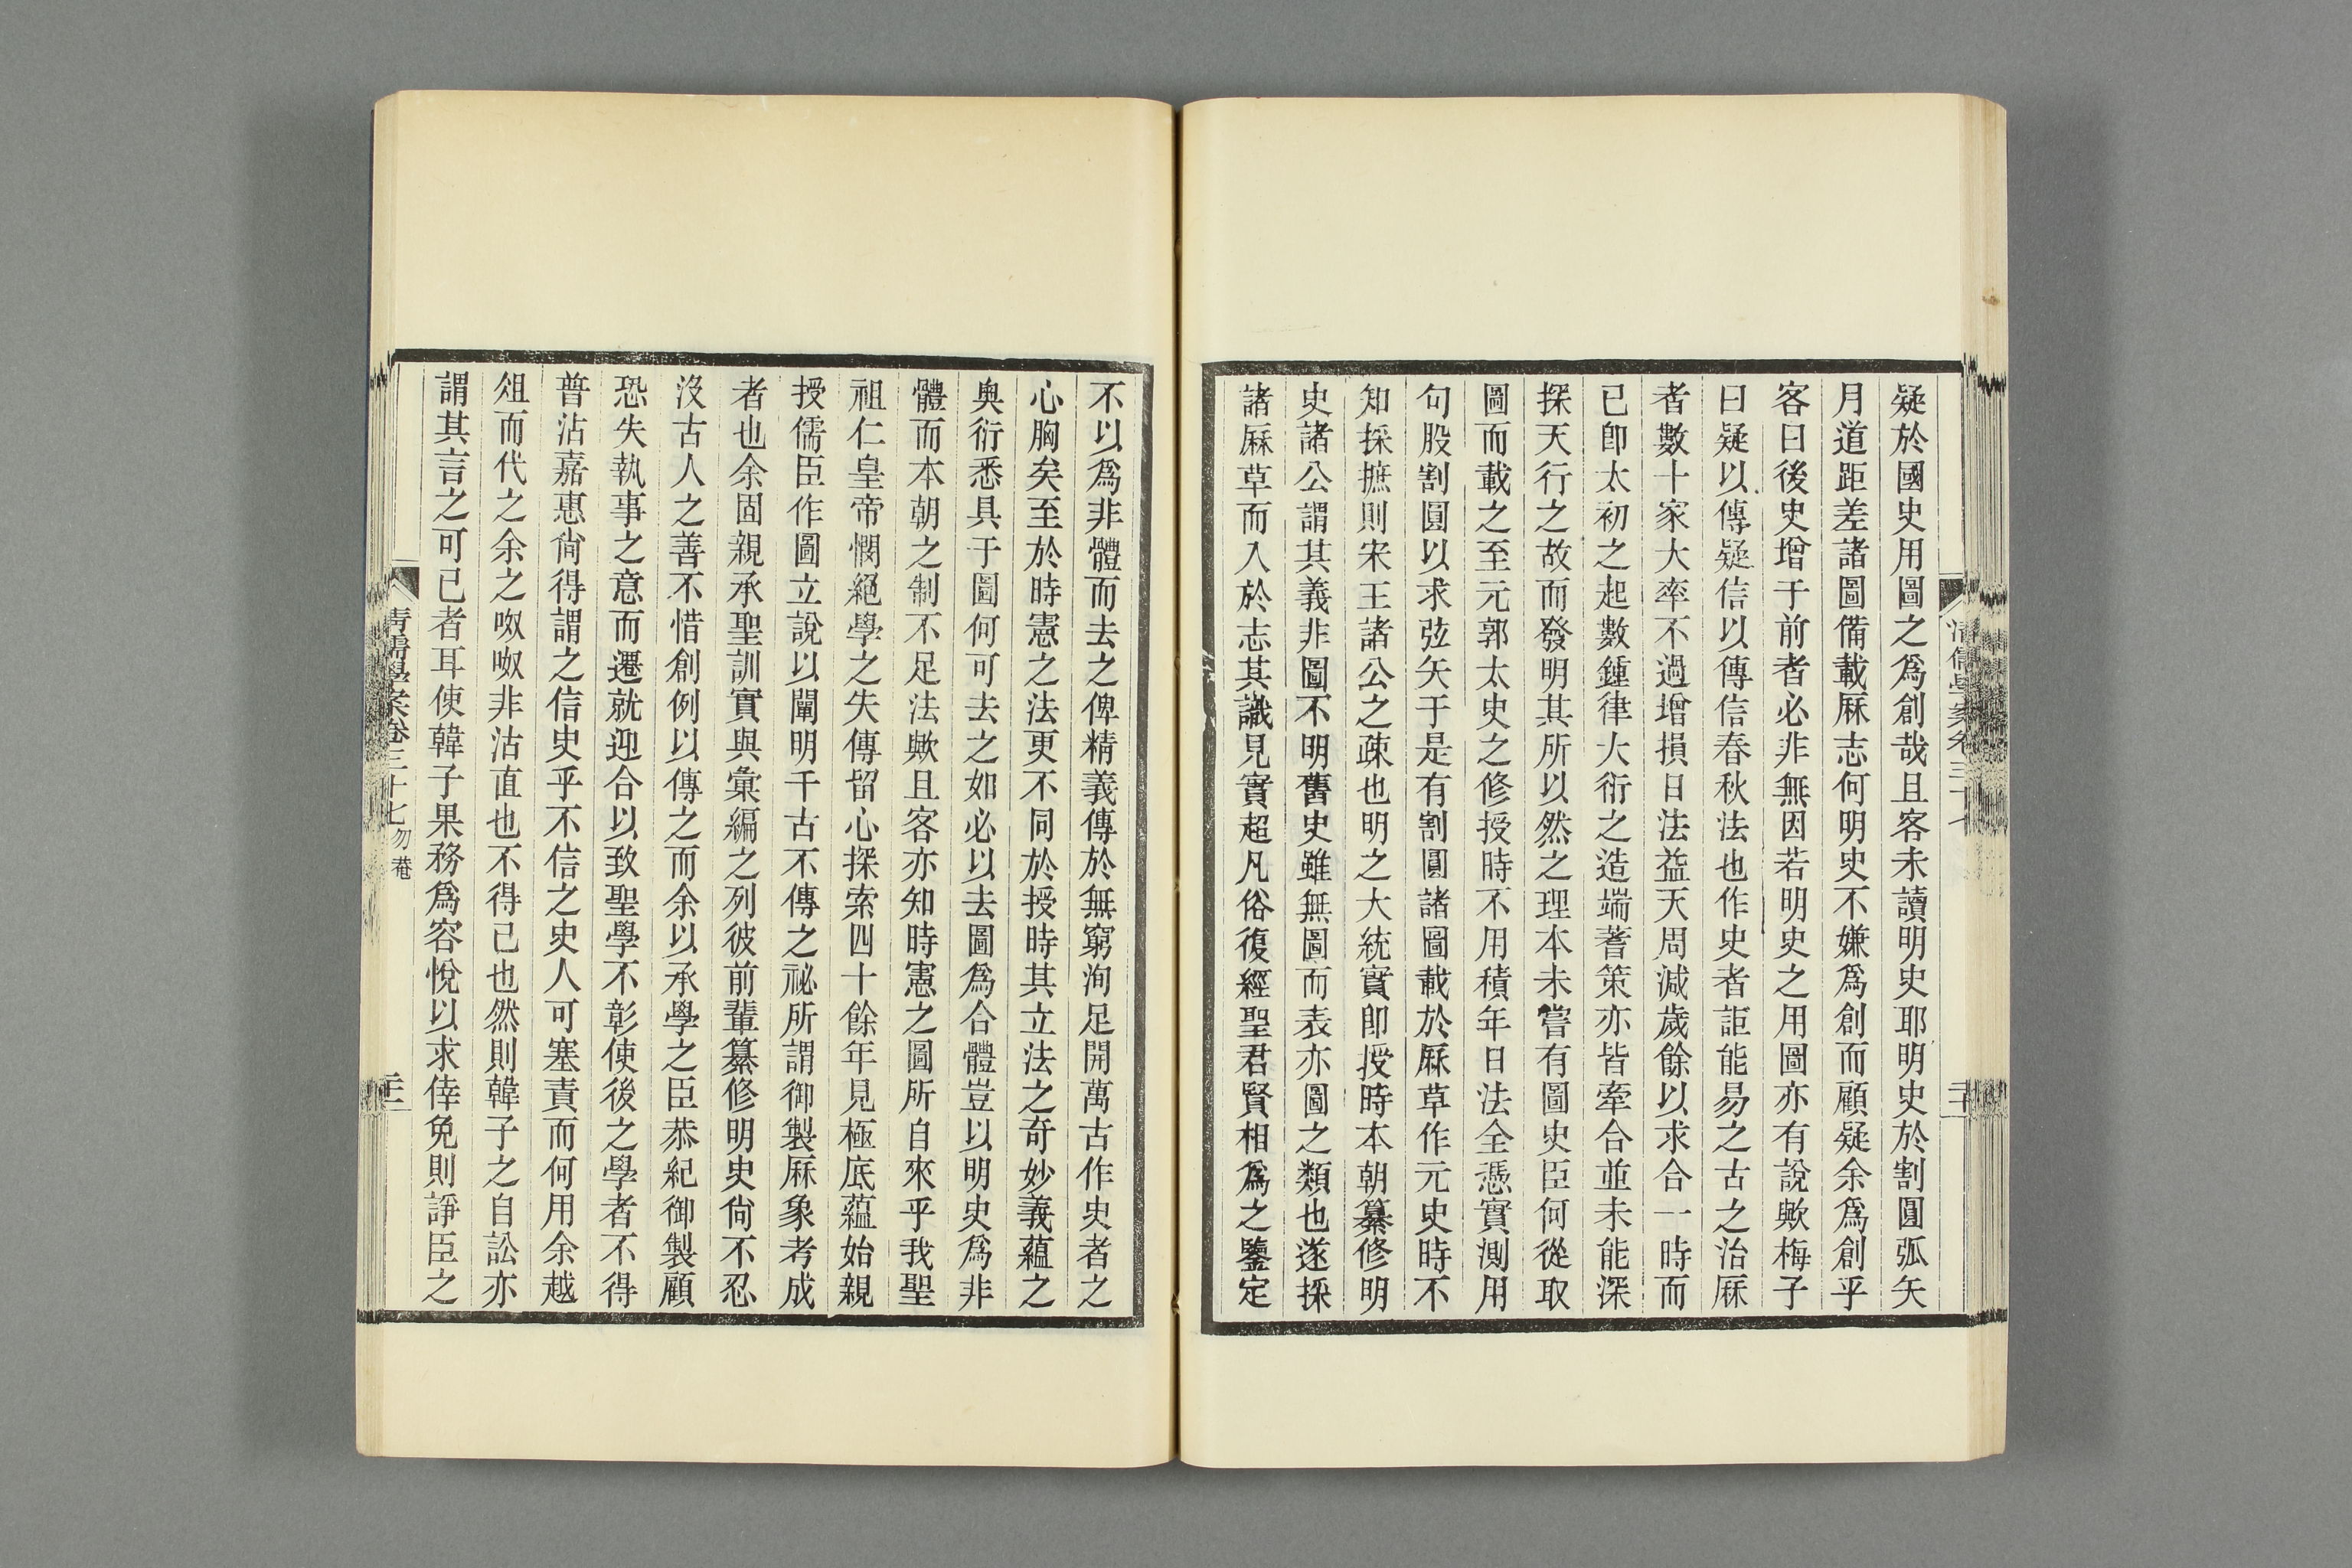 疑於國史用圖之爲創哉且客未讀明史耶明史於割圓弧矢
月道距差諸圖備載厤志何明史不嫌爲創而顧疑余爲創乎
客曰後史增于前者必非無因若明史之用圖亦有說歟梅子
曰疑以傳疑信以傳信春秋法也作史者詎能易之古之治厤
者數十家大率不過增損日法益天周減歲餘以求合一時而
已卽太初之起數鍾律大衍之造端蓍策亦皆牽合並未能深
探天行之故而發明其所以然之理本未嘗有圖史臣何從取
圖而載之至元郭太史之修授時不用積年日法全憑實測用
句股割圓以求弦矢于是有割圓諸圖載於厤草作元史時不
知採摭則宋王諸公之疎也明之大統實卽授時本朝纂修明
史諸公謂其義非圖不明舊史雖無圖而表亦圖之類也遂採
諸厤草而入於志其識見實超凡俗復經聖君賢相爲之鑒定
不以爲非體而去之俾精義傳於無窮洵足開萬古作史者之
心胸矣至於時憲之法更不同於授時其立法之奇妙義蘊之
奥衍悉具于圖何可去之如必以去圖爲合體豈以明史爲非
體而本朝之制不足法歟且客亦知時憲之圖所自來乎我聖
祖仁皇帝憫絕學之失傳留心探索四十餘年見極底蘊始親
授儒臣作圖立說以闡明千古不傳之祕所謂御製厤象考成
者也余固親承聖訓實與彙編之列彼前輩纂修明史尙不忍
沒古人之善不惜創例以傳之而余以承學之臣恭紀御製顧
恐失執事之意而遷就迎合以致聖學不彰使後之學者不得
普沾嘉惠尙得謂之信史乎不信之史人可塞責而何用余越
俎而代之余之呶呶非沽直也不得已也然則韓子之自訟亦
謂其言之可已者耳使韓子果務爲容悅以求倖免則諍臣之
清儒學案卷三十七 勿菴